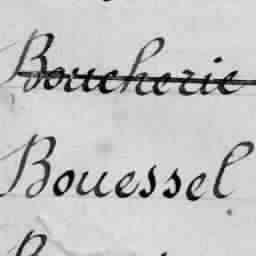 Boucherie
Bouessel